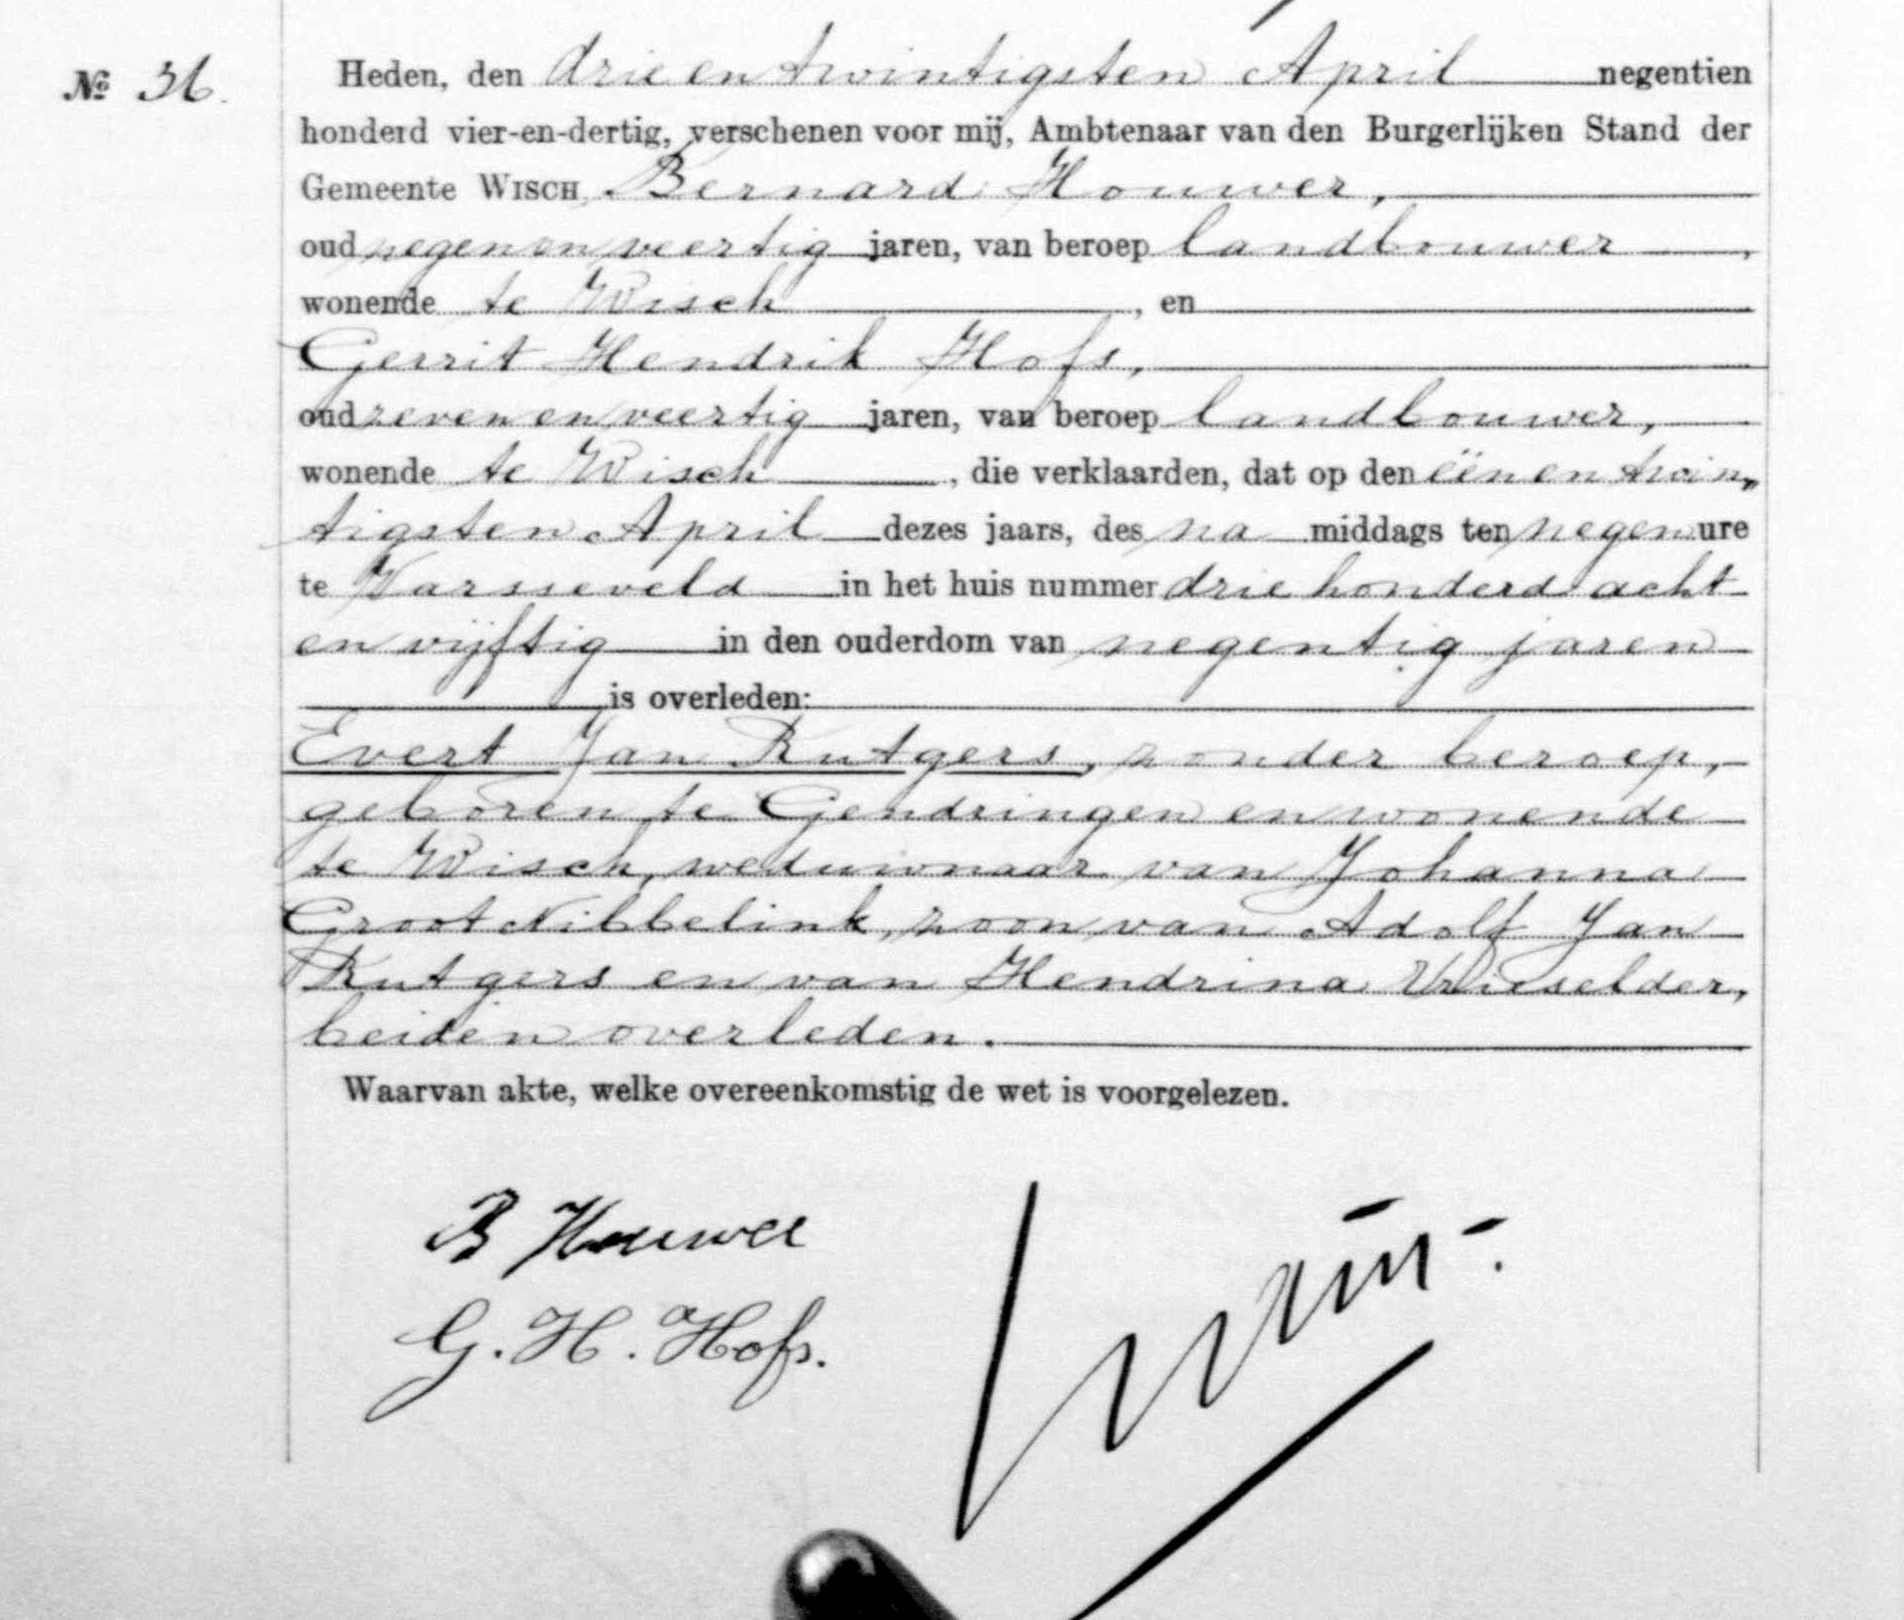 № 36.
Heden, den drie en twintigsten April negentien
honderd vier-en-dertig, verschenen voor mij, Ambtenaar van den Burgerlijken Stand der
Gemeente WISCH Bernard Houwer,
oud negen en veertig jaren, van beroep landbouwer,
wonende te Wisch, en
Gerrit Hendrik Hofs,
oud zeven en veertig jaren, van beroep landbouwer,
wonende te Wisch, die verklaarden, dat op den eënen twin„
tigsten April dezes jaars, des na middags ten negen ure
te Varsseveld in het huis nummer driehonderd acht
en vijftig in den ouderdom van negentig jaren
is overleden:
Evert Jan Rutgers, zonder beroep,
geboren te Gendringen en wonende
te Wisch, weduwnaar van Johanna
Groot Nibbelink, zoon van Adolf Jan
Rutgers en van Hendrina Vrieselder,
beiden overleden.
Waarvan akte, welke overeenkomstig de wet is voorgelezen.
B Houwer
G. H. Hofs.